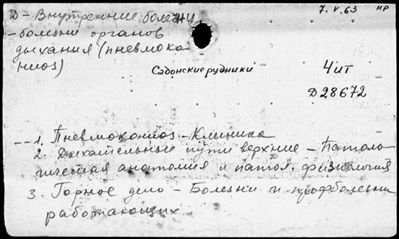 Д - Внутренние болезни 7.V.63 нр
- болезни органов
дыхания (пневмоко-
ниоз)
Садонские рудники Чит
Д28672
1. Пневмокониоз - Клиника
2. Дыхательные пути верхние - Патоло-
гическая анатомия и патол. физиология
3. Горное дело - Болезни и профболезни
работающих.